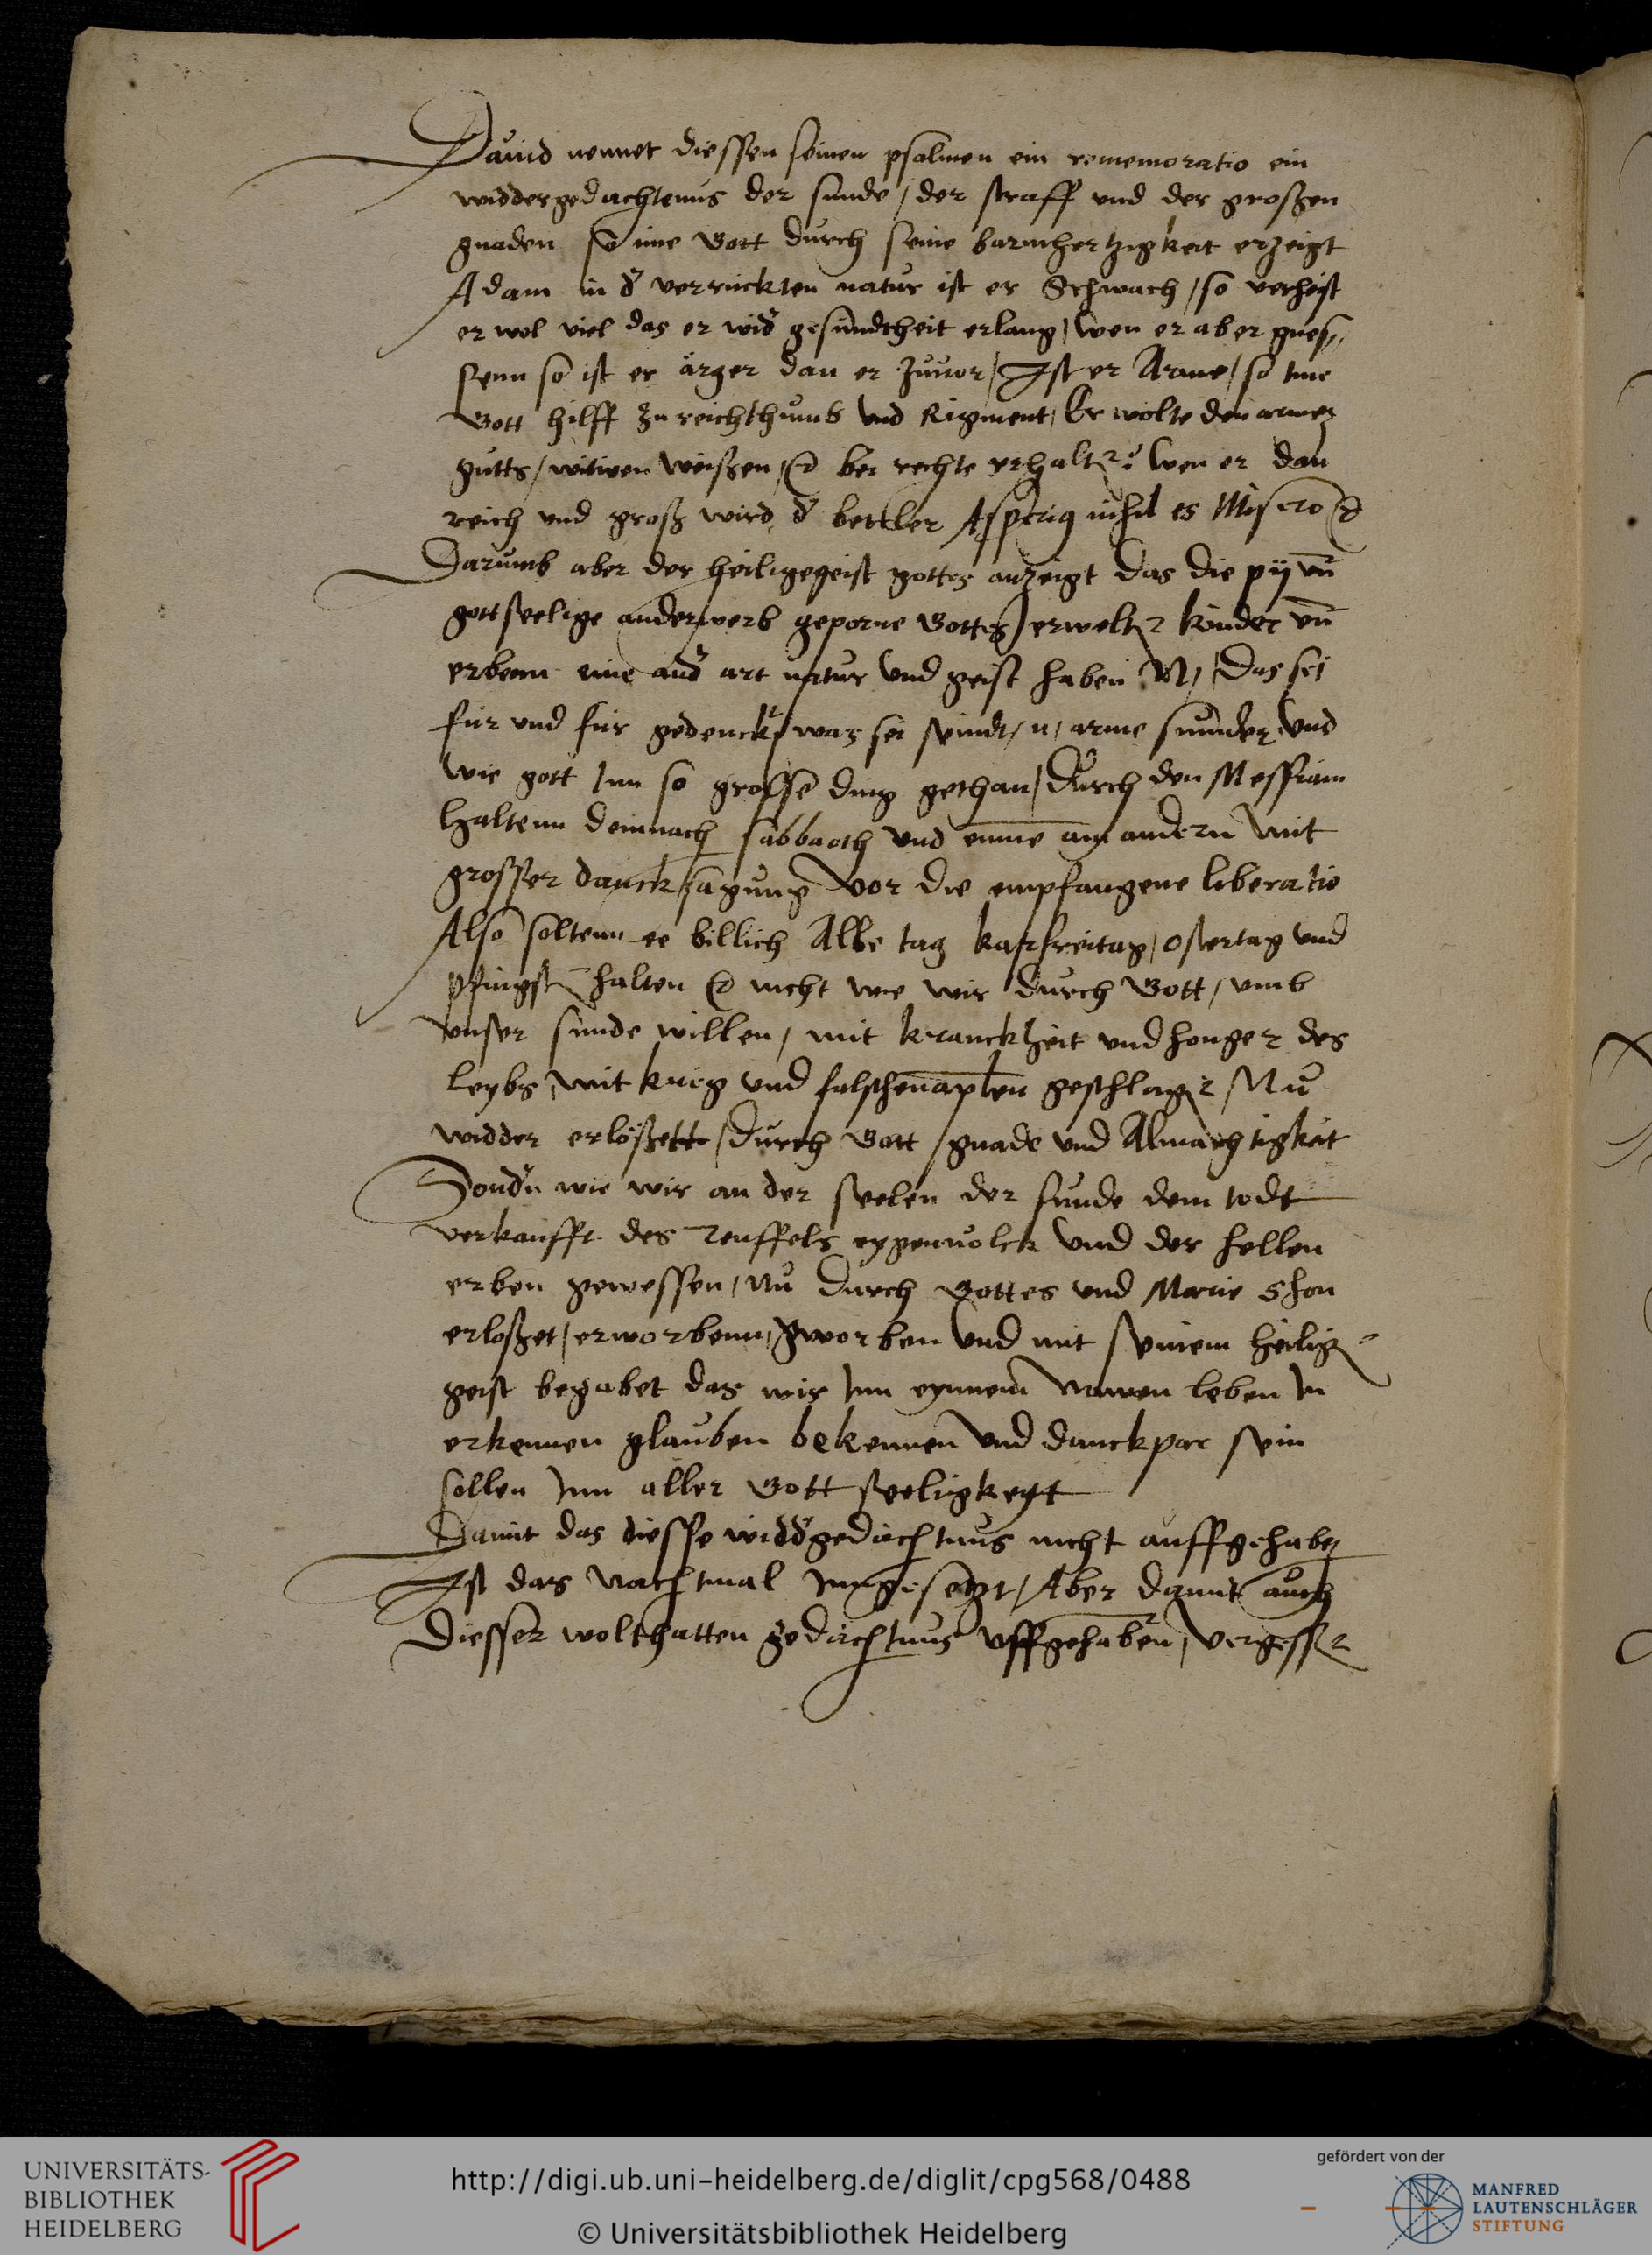 Dauid nennet diessen seinen psalmen ein rememoratio ein
widdergedachtenus der sunde / der straff vnd der großen
gnaden so ime Gott durch seine barmhertzigkeit erzeigt
Adam in d verruckten natur ist er Schwach / so verheist
er wol viel das er wid gesundtheit erlang / wen er aber gnes//
senn so ist er ärger dan er zuuor / Ist er Arme / so ime
Gott hilff zu reichthumb vnd Rigment / Er wolte den armen
gutts / witwen weißen / bei rechte erhalten wen er dan
reich vnd groß wird d bettler nihil es Misero
Darumb aber der heiligegeist gottes anzeigt das die pij vn
gottseelige anderwerb geporne Gottes erwelte kinder vn
erbenn eine and art natur vnd geist haben / das sei
fur vnd fur gedencken was sei seindt / n / arme sunder vnd
wie gott inn so grosse ding gethan / durch den Messiam
haltenn demnach sabbaoth vnd einne am andern mit
grosser dancksagung vor die empfangene liberatio
Also soltenn ee billich Alle tag karfreitag / ostertag vnd
Pfingst halten nicht wie wir durch Gott / vmb
vnser sunde willen / mit kranckheit vnd honger des
leybs mit krieg vnd falschen geschlagen / Nu
widder erlößett / durch Gott gnade vnd Almachtigkeit
Sondn wie wir an der seelen der sunde dem todt
verkaufft des Teuffels eygenuolck vnd der hellen
erben gewessen / nu durch Gottes vnd Marie Shon
erloßet / erworbenn / gworben vnd mit seinem heilig
geist begabet das wir inn eynnem nawen leben in
erkennen glauben bekennen vnd danckpar sein
sollen inn aller Gottseeligkeytt
Damit das diesse widdgedächtnus nicht auffgehaben
Ist das nachtmal inngesetzt / Aber damit auch
diesser wolthatten gedächtnus vffgehaben / vergessen
UNIVERSITÄTS-
BIBLIOTHEK
HEIDELBERG
http://digi.ub.uni-heidelberg.de/diglit/cpg568/0488
© Universitätsbibliothek Heidelberg
gefördert von der
MANFRED
LAUTENSCHLÄGER
STIFTUNG